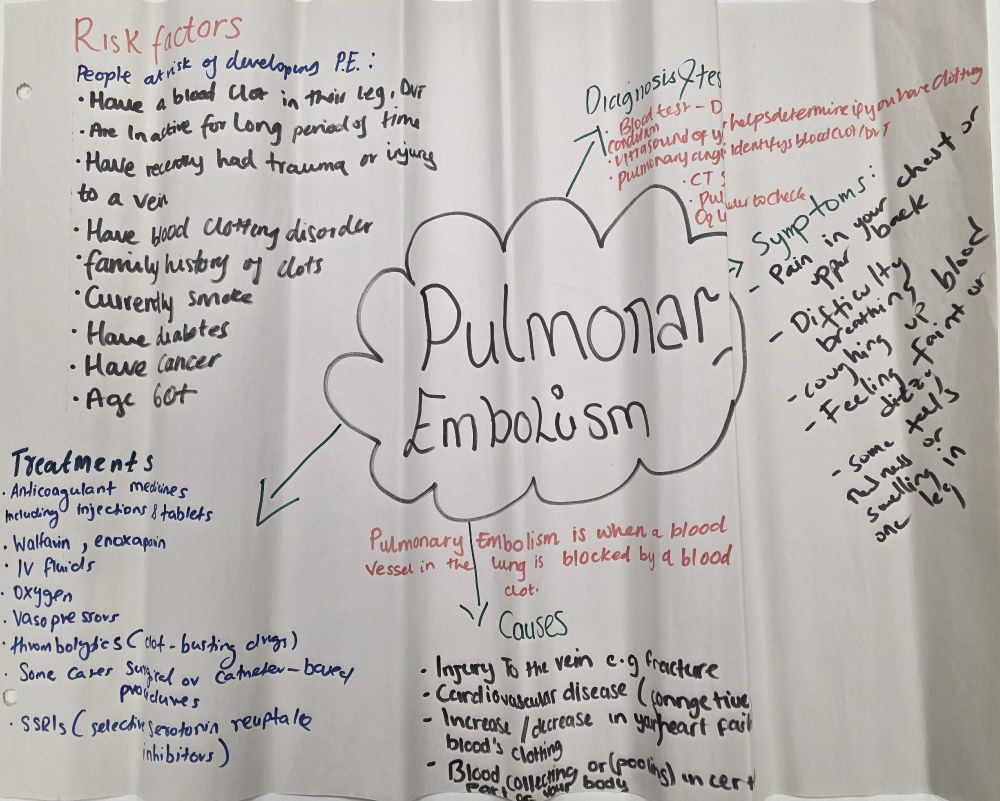 Risk factors
People at risk of developing P.E.:
• Have a blood clot in their leg, DVT
• Are Inactive for Long period of time
• Have recently had trauma or injury
to a vein
• Have blood clotting disorder
• family history of clots
• Currently smoke
• Have diabetes
• Have cancer
• Age 60+
Diagnosis & tes
• Blood test - D helps determine if you have clotting
condition
• Ultrasound of y identifys blood clot/DVT
• Pulmonary angi
• CT S
• Pul
O2 l to check
Symptoms:
- Pain in your chest or
uppr back
- Difficulty
breathing
- coughing up blood
- Feeling faint or
dizzy
- Some feels
redness or
swelling in
one leg
Pulmonar
Embolism
Treatments
• Anticoagulant medicines
including injections & tablets
• Walfarin, enoxaparin
• IV fluids
• Oxygen
• Vasopressors
• thrombolytics (clot-busting drugs)
• Some cases surgical or catheter-based
procedures
• SSRIs (selective serotonin reuptake
inhibitors)
Pulmonary Embolism is when a blood
vessel in the lung is blocked by a blood
clot.
Causes
• Injury To the vein e.g fracture
• Cardiovascular disease (conngetive
• Increase/decrease in your heart fail
blood's clothing
• Blood collecting or (pooling) in cert
part of your body